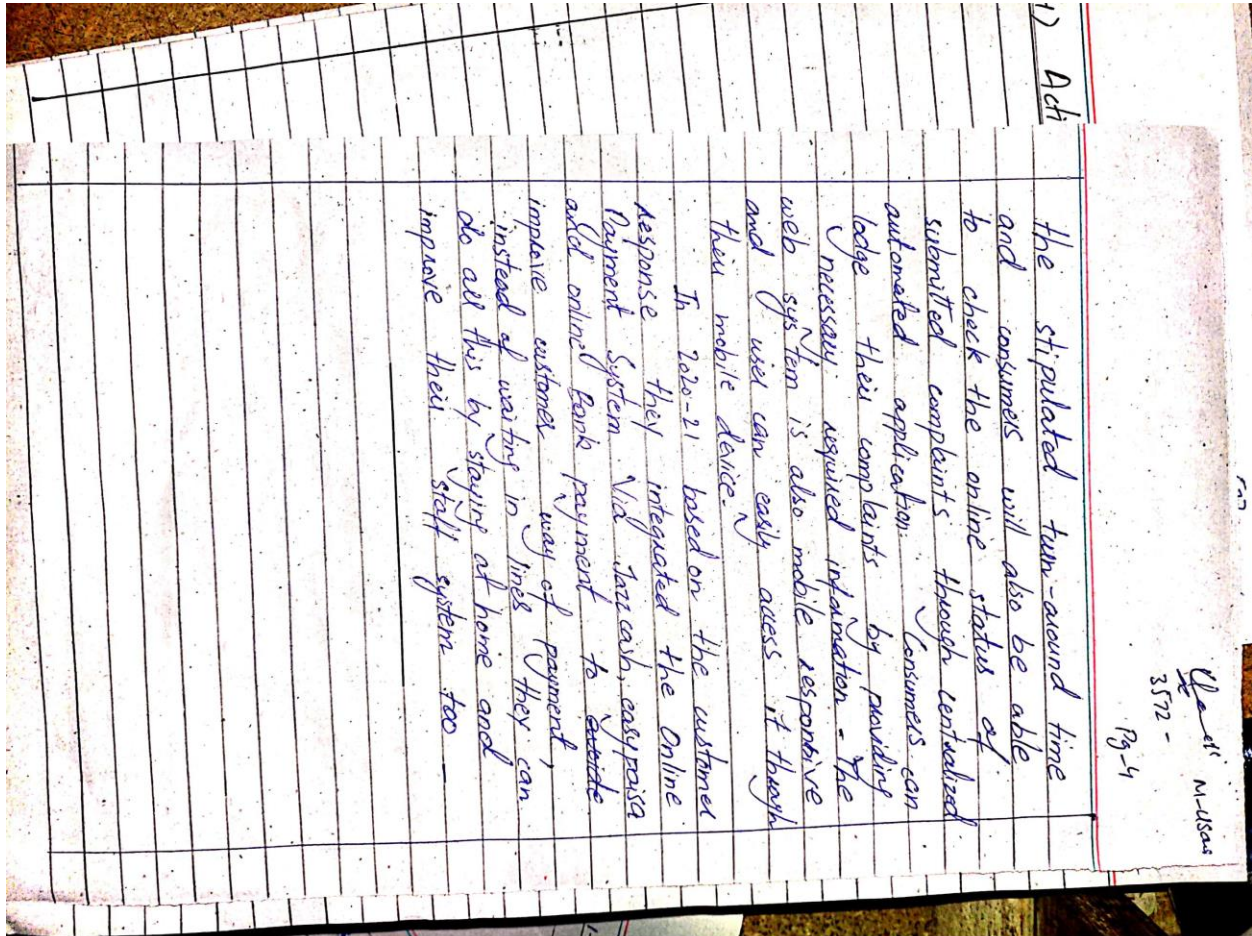 1) Acti
M-Usas
3572 -
Pg-4
the stipulated turn-around time
and consumers will also be able
to check the online status of
submitted complaints through centralized
automated application. Consumers can
lodge their complaints by providing
necessary required information - The
web system is also mobile responsive
and user can easily access it through
their mobile device -
In 2020-21 based on the customer
Response they integrated the Online
Payment System Via Jazzcash, easypaisa
and online Bank payment to
improve customer way of payment,
instead of waiting in lines they can
do all this by staying at home and
improve their staff system too -